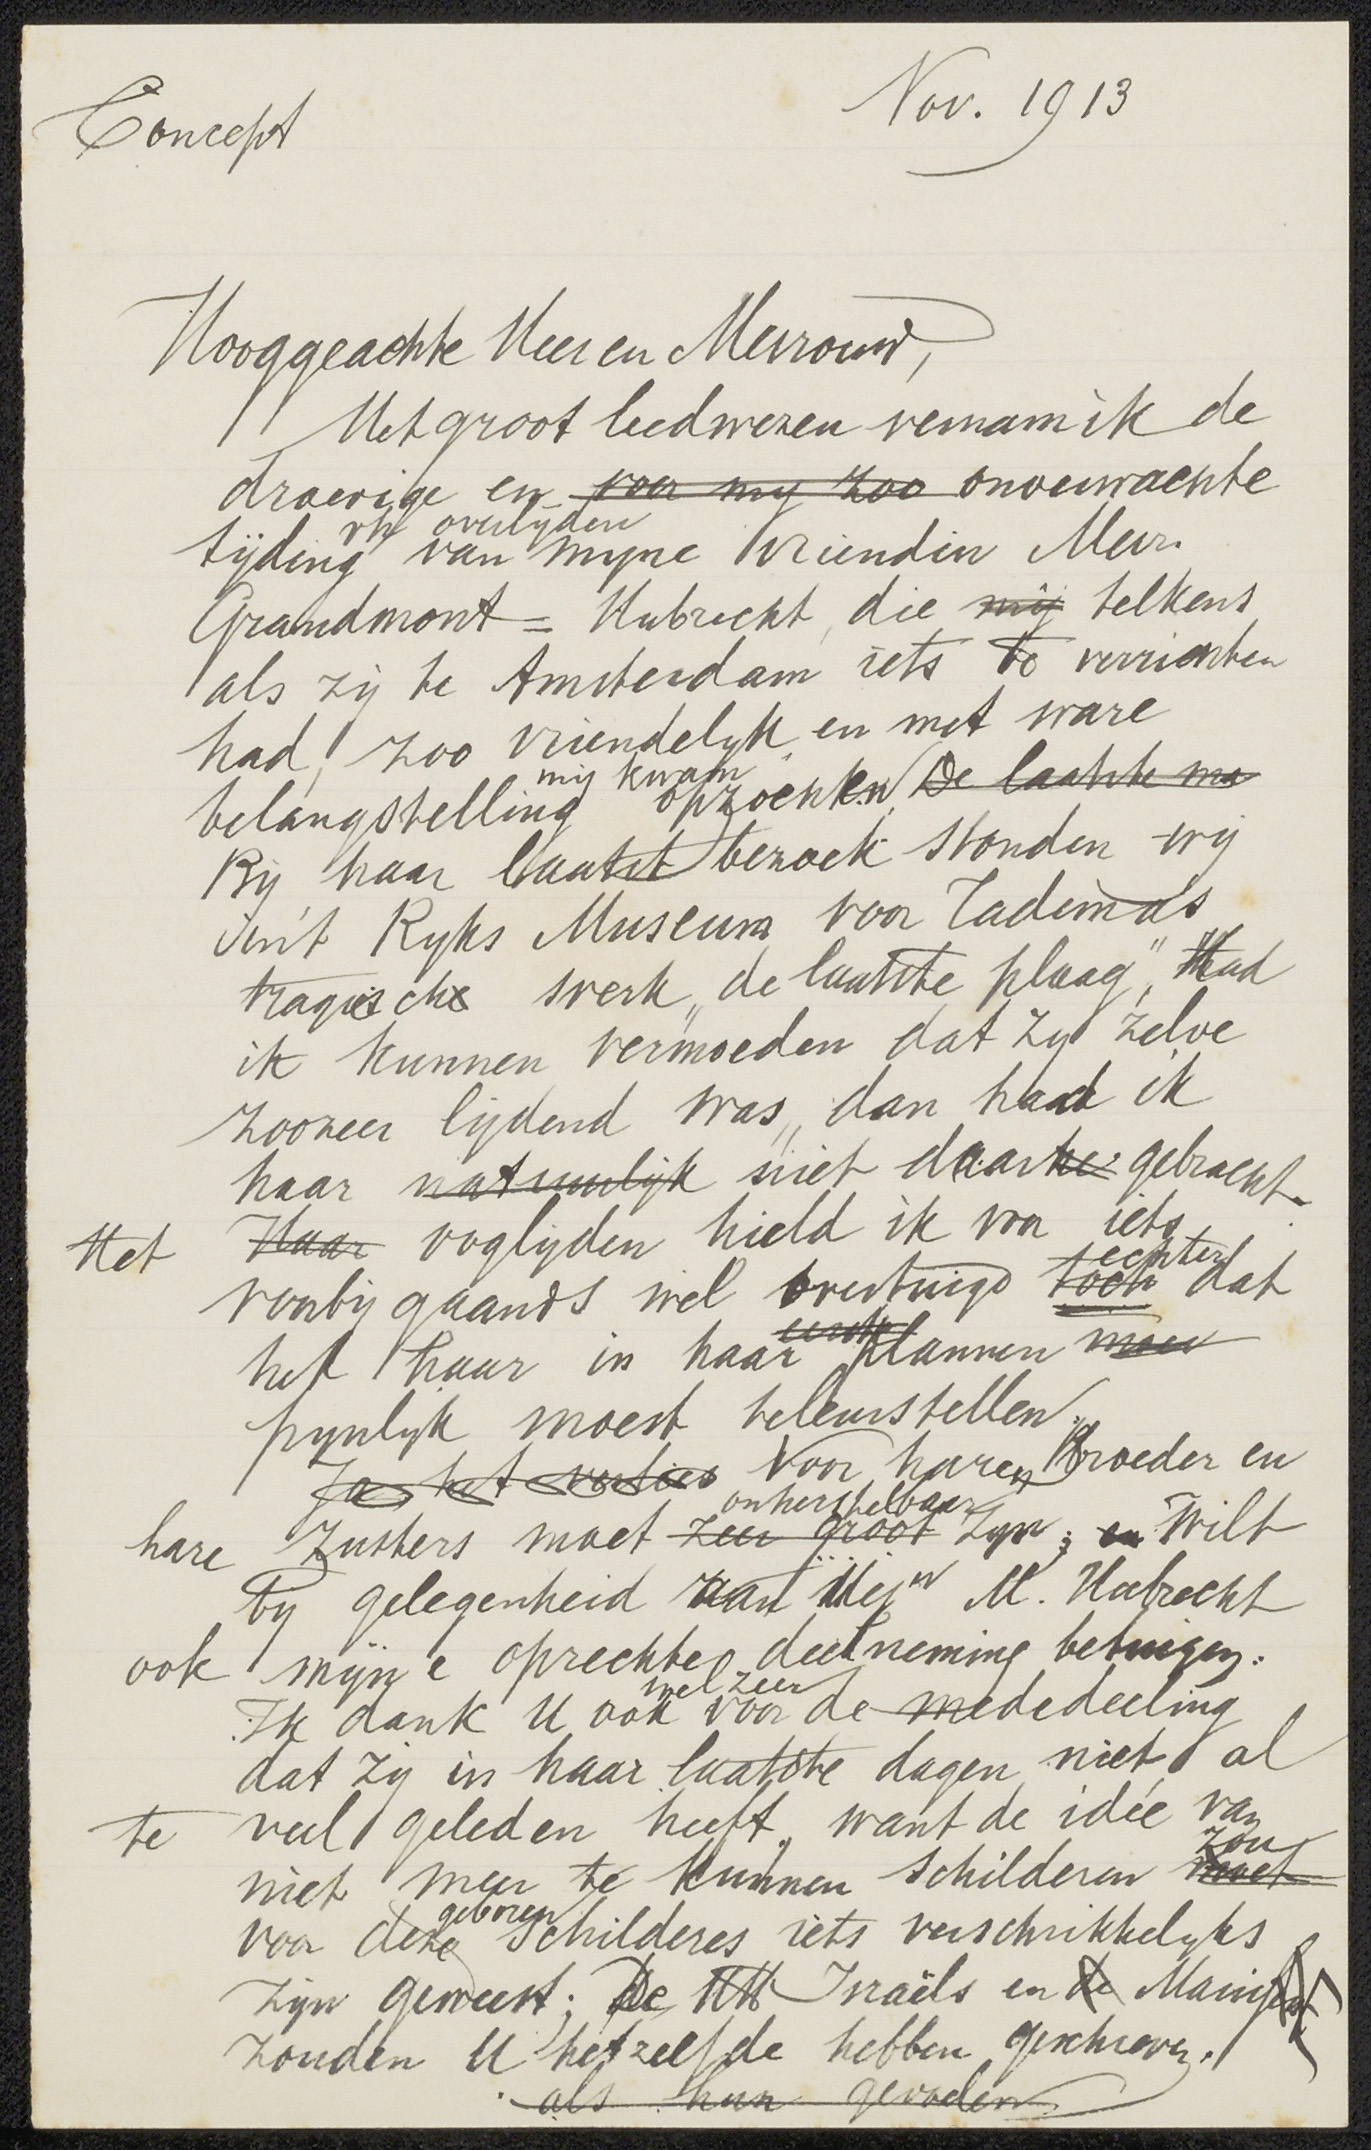 Concept
Nov. 1913
Hooggeachte Heer en Mevrouw,
Met groot leedwezen vernam ik de
droevige en voor mij zoo onverwachte
tijding v/h overlijden van mijne vriendin Mevr.
Grandmont = Hubrecht, die mij telkens
als zij te Amsterdam iets te verrichten
had, zoo vriendelijk en met ware
belangstelling mij kwam opzoeken. De laatste ma
Bij haar laatst bezoek stonden wij
in't Ryks Museum voor Tadema's
tragische werk „de laatste plaag", Had
ik kunnen vermoeden dat zij zelve
zoozeer lijdend was, dan had ik
haar natuurlijk niet daarhe gebracht.
Het Haar ooglijden hield ik voor iets
voorbijgaands wel overtuigd toch echter dat
het haar in haar eerste plannen meer
pijnlijk moest teleurstellen.
Ja het verlies Voor haren Broeder en
hare Zusters moet zeer groot onherstelbaar zijn; en Wilt
bij gelegenheid aan Mejw M. Hubrecht
ook mijne oprechte deelneming betuigen.
Ik dank U ook wel zeer voor de mededeeling
dat zij in haar laatste dagen niet al
te veel geleden heeft, want de idée van
niet meer te kunnen schilderen moet zou
voor deze geboren schilderes iets verschrikkelijks
zijn geweest; De HH Israëls en de Maris
zouden U hetzelfde hebben geschreven.
als hun gevoelen